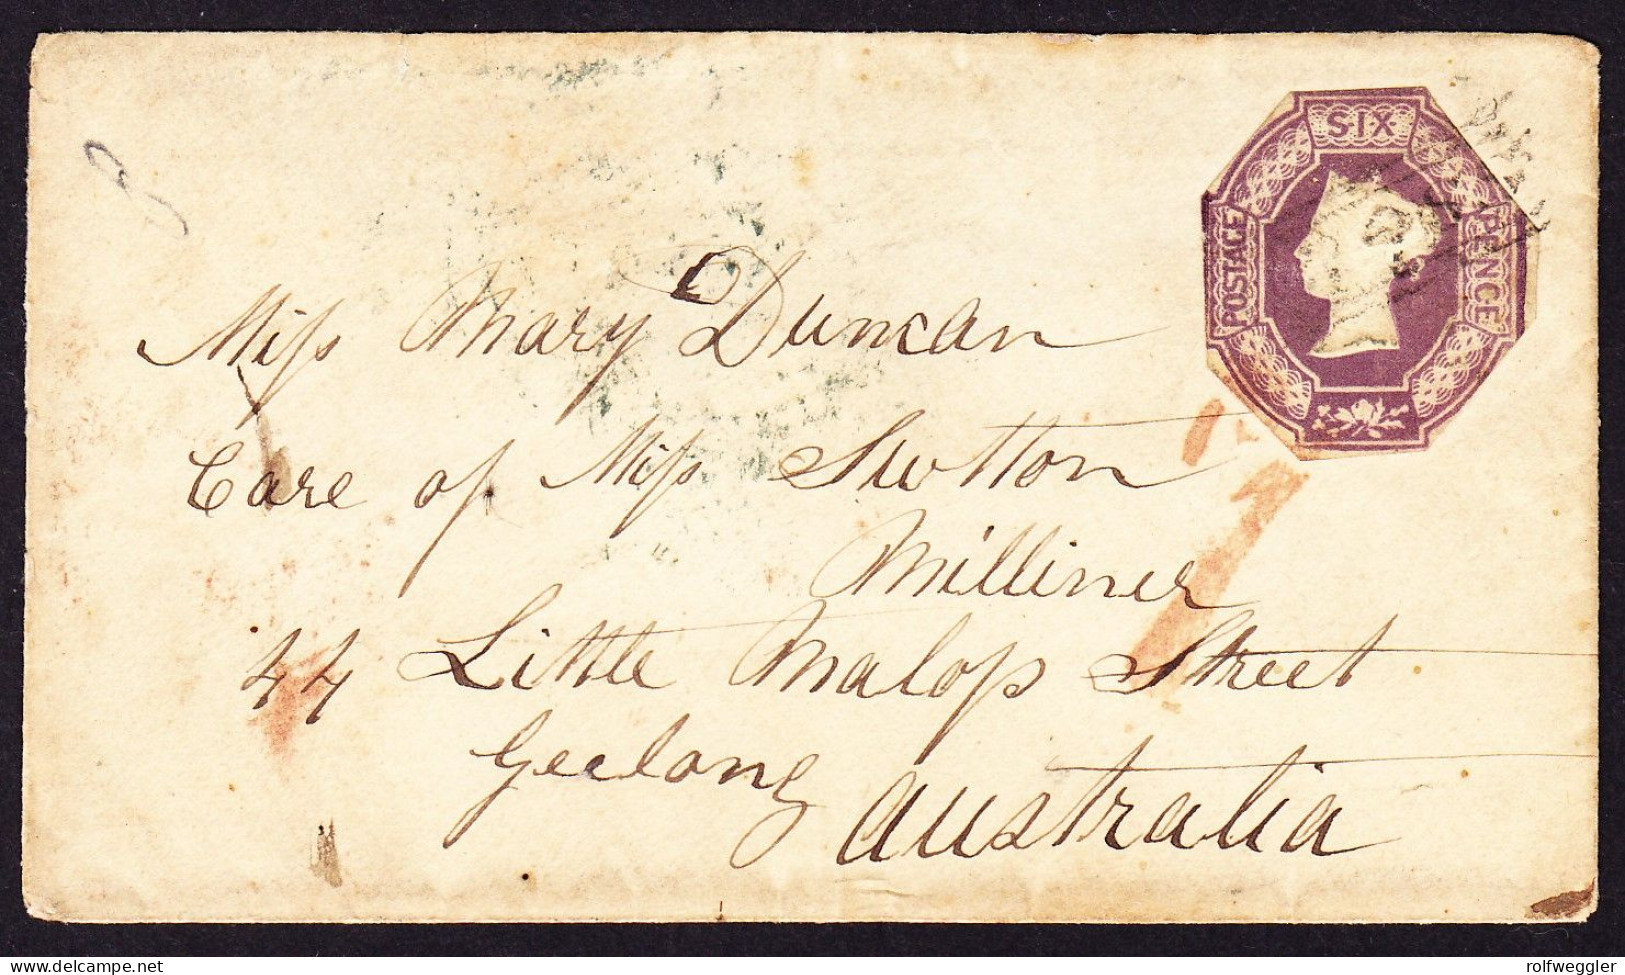 SIX
POSTAGE
PENCE
Miſs Mary Duncan
Care of Miſs Sutton
Milliner
44 Little Malop Street
Geelong
Australia
delcampe.net
rolfweggler